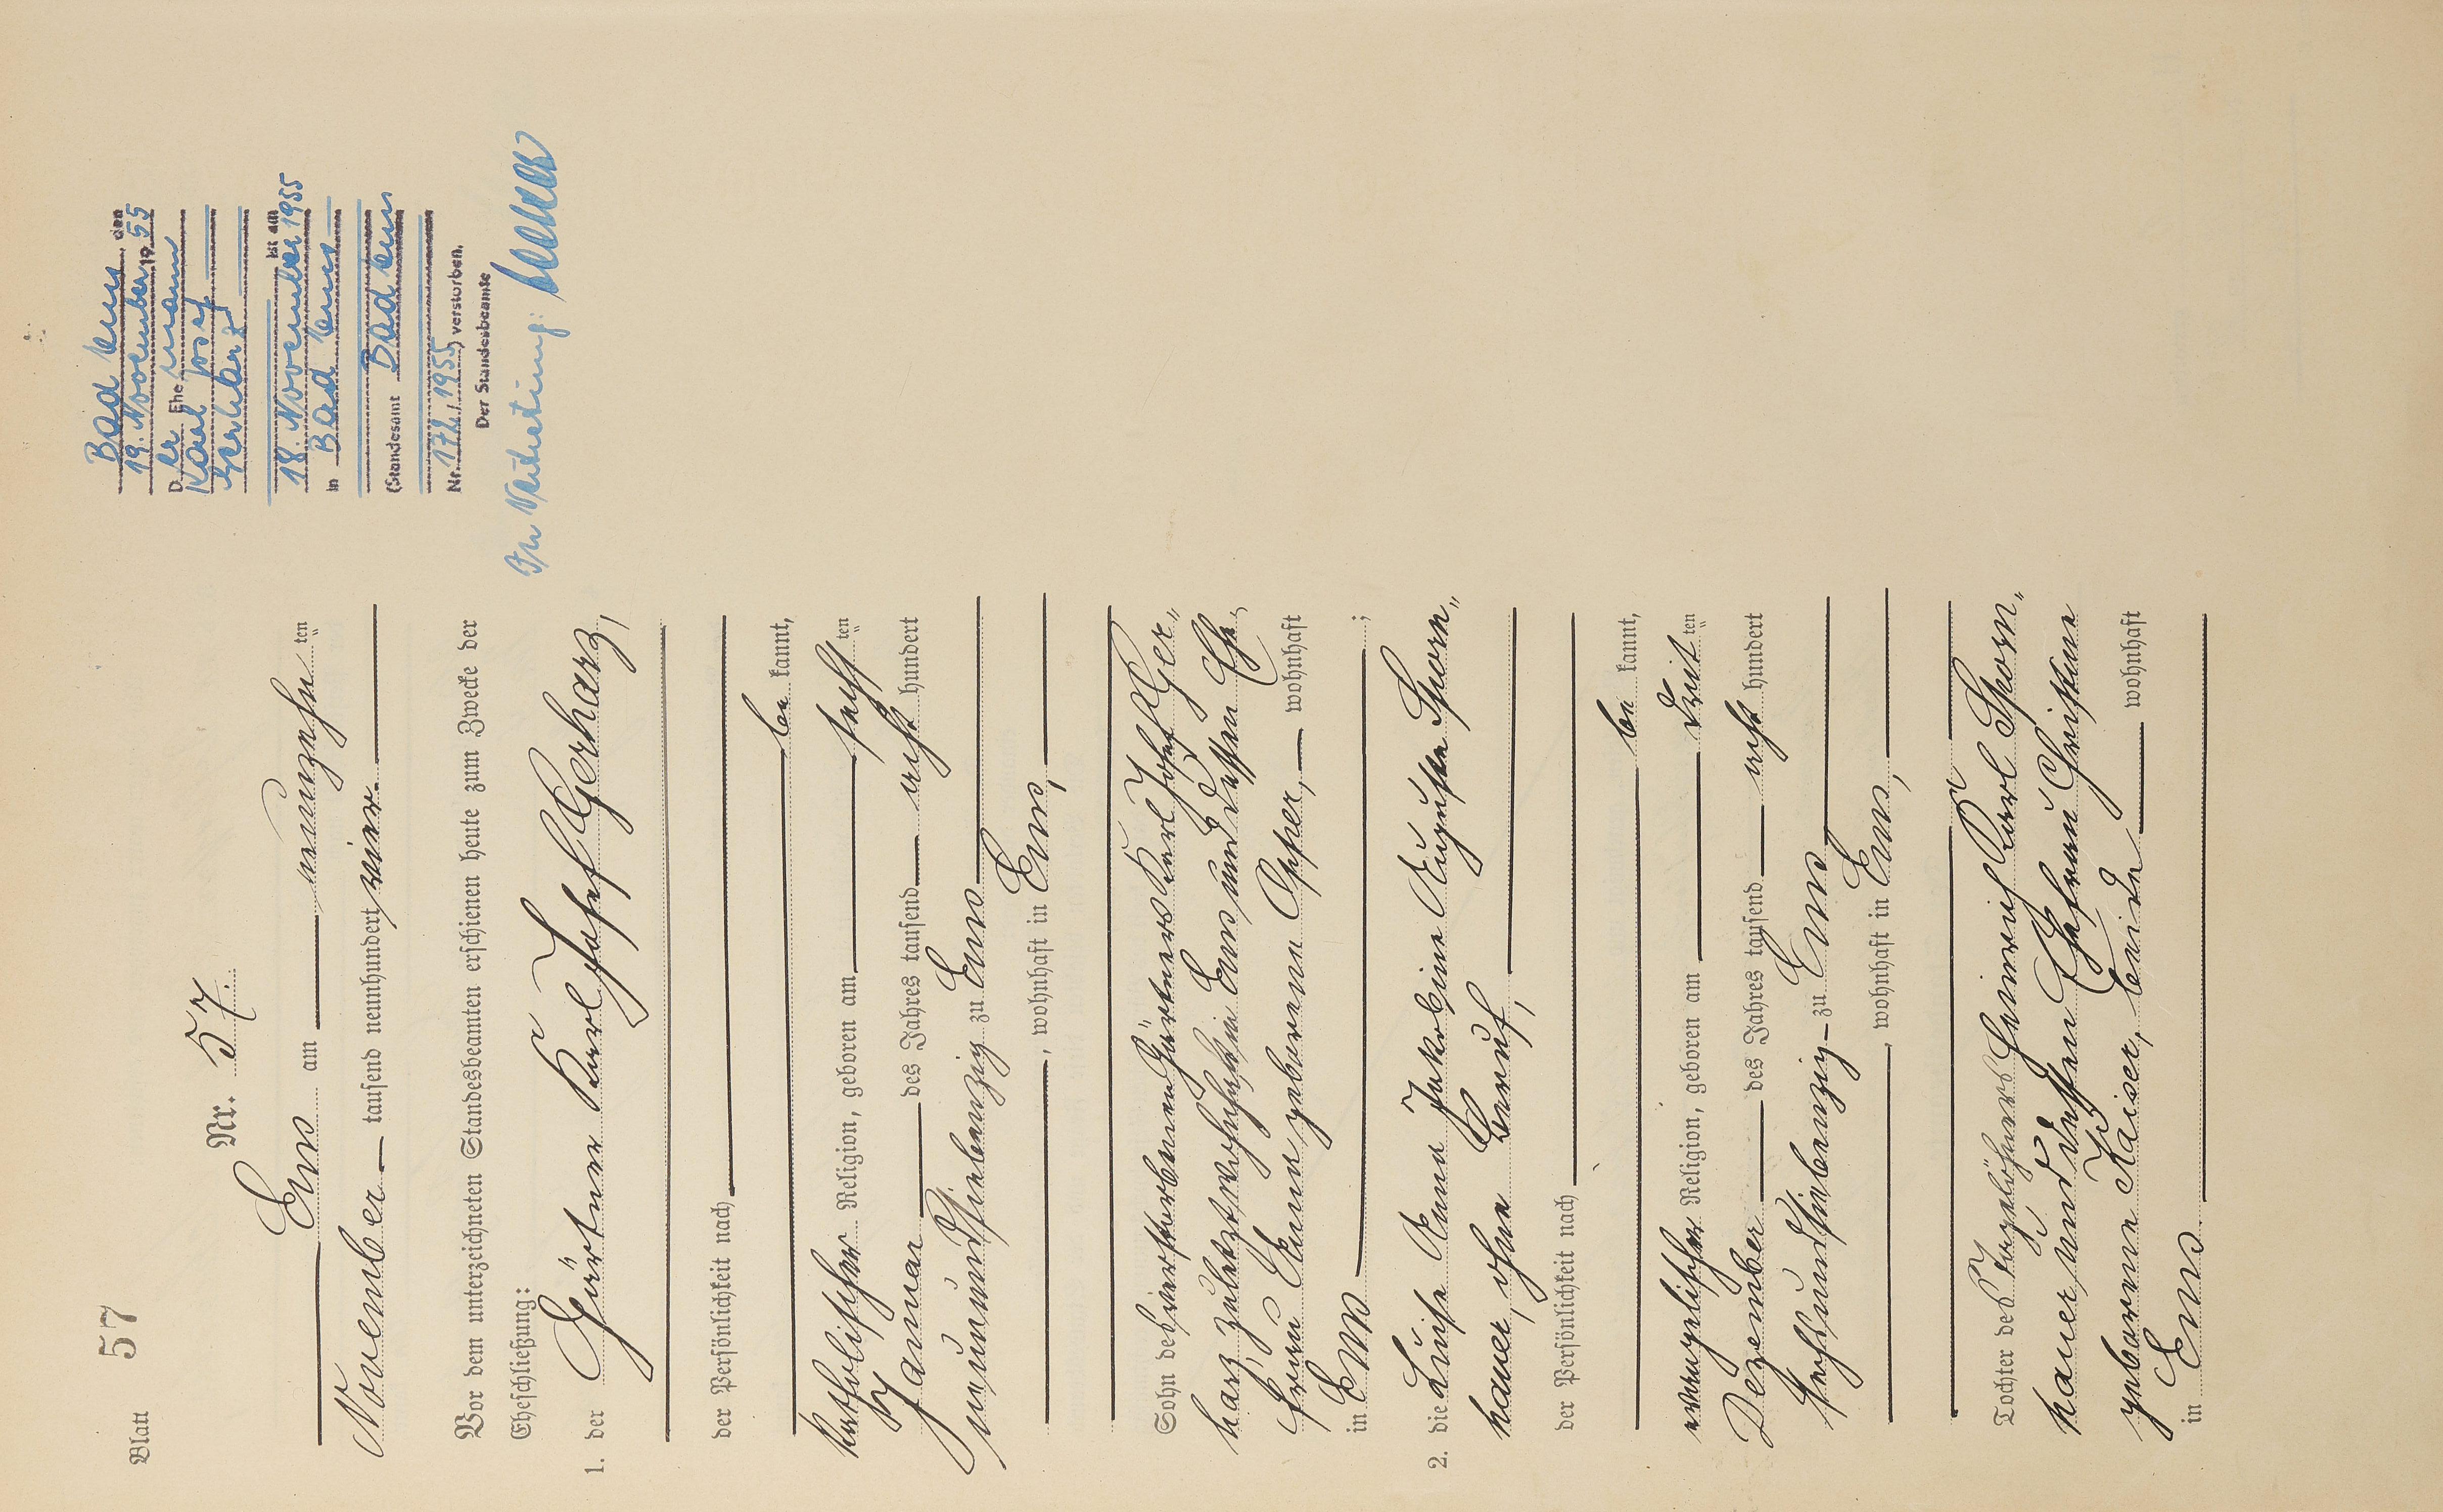 Blatt 57
Nr. 57.
Ems am neunzehn ten
November tausend neunhundert vier.
Vor dem unterzeichneten Standesbeamten erschienen heute zum Zwecke der
Eheschließung:
1. der Gärtner Karl Josef Gerharz,
der Persönlichkeit nach
be kannt,
katholischer Religion, geboren am sechs ten
Januar des Jahres tausend acht hundert
neunundsiebenzig zu Ems
, wohnhaft in Ems,
Sohn des verstorbenen Gärtners Karl Josef Ger„
harz, zuletzt wohnhaft in Ems und dessen Ehe„
frau Anna geborene Opper, wohnhaft
in Ems ;
2. die Luise Anna Jakobine Auguste Sporn„
hauer, ohne Beruf,
der Persönlichkeit nach
be kannt,
evangelischer Religion, geboren am dreit ten
Dezember des Jahres tausend acht hundert
sechsundsiebenzig zu Ems
, wohnhaft in Ems,
Tochter des Tagelöhners Heinrich Karl Sporn„
hauer und dessen Ehefrau Christine
geborene Kaiser, beide wohnhaft
in Ems
Bad Ems, den
19. November 19 55
D er Ehe mann
Karl Josef
Gerharz
ist am
18. November 1955
in Bad Ems
(Standesamt Bad Ems
Nr. 172, 1955) verstorben.
Der Standesbeamte
In Vertretung: